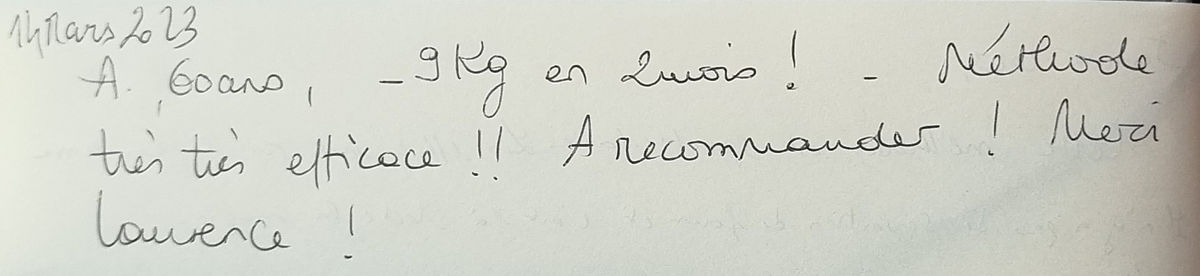 14 Mars 2023
A. 60ans, -9Kg en 2mois ! - Méthode
très très efficace !! A recommander ! Merci
Laurence !